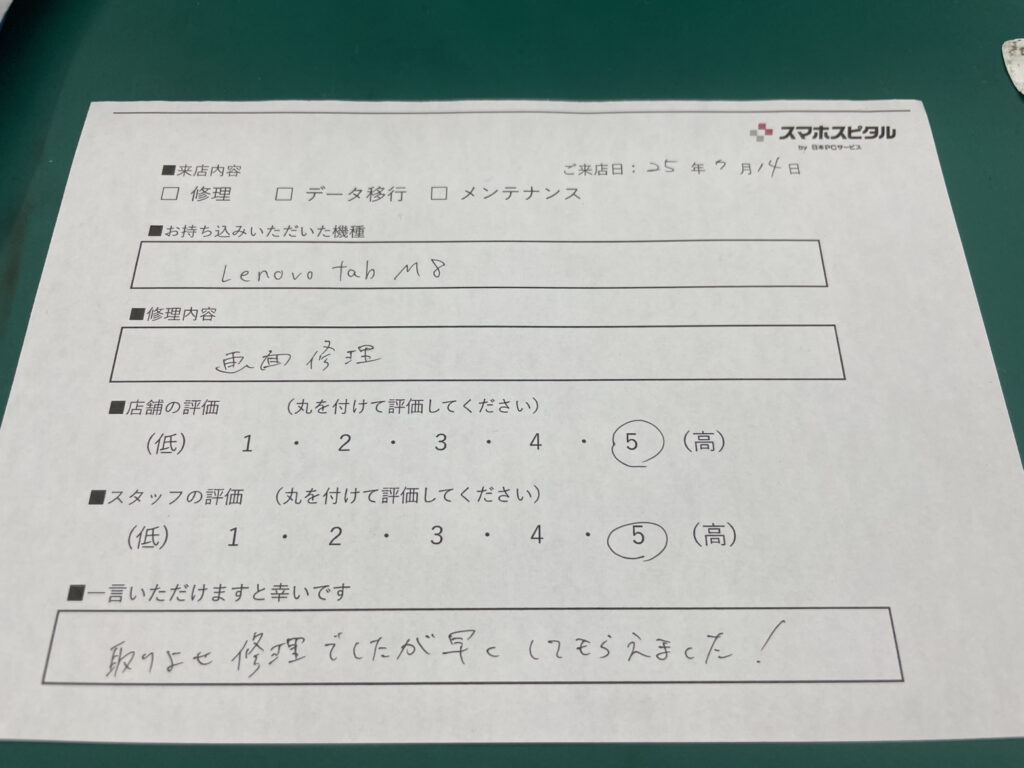 スマホスピタル
by 日本PCサービス
■来店内容
ご来店日：25 年 9 月 14 日
□ 修理 □ データ移行 □ メンテナンス
■お持ち込みいただいた機種
Lenovo tab M8
■修理内容
画面修理
■店舗の評価 （丸を付けて評価してください）
（低） 1 ・ 2 ・ 3 ・ 4 ・ 5 （高）
■スタッフの評価 （丸を付けて評価してください）
（低） 1 ・ 2 ・ 3 ・ 4 ・ 5 （高）
■一言いただけますと幸いです
取りよせ修理でしたが早くしてもらえました！